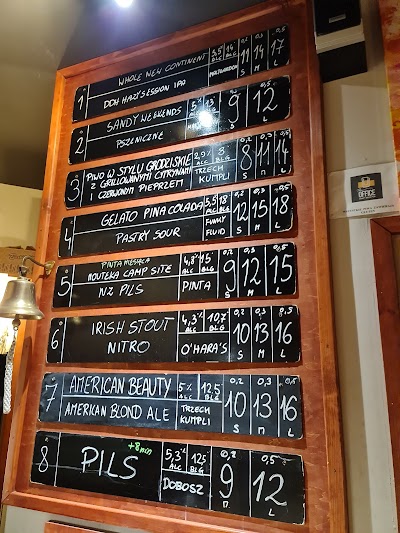 1
WHOLE NEW CONTINENT
DDH HAZY SESSION IPA
3,5 ALC
14 BLG
0,2 11 S
0,3 14 M
0,5 17 L
2
SANDY WEEKENDS
PSZENICZNE
5% 13
9 S
0,5 12 L
3
PIWO W STYLU GRODZISKIE
Z GRILLOWANYMI CYTRYNAMI
I CZERWONYM PIEPRZEM
2,9% ALC
8 BLG
TRZECH KUMPLI
0,2 8 S
0,3 11 M
0,5 14 L
4
GELATO PINA COLADA
PASTRY SOUR
5,5 ALC
18 BLG
FUNKY FLUID
0,2 12 S
0,3 15 M
0,5 18 L
5
PINTA MIESIĄCA
MOUTEKA CAMP SITE
NZ PILS
4,8% ALC
BLG
PINTA
0,2 9 S
0,3 12 M
0,5 15 L
6
IRISH STOUT
NITRO
4,3% ALC
10,7 BLG
O'HARA'S
0,2 10 S
0,3 13 M
0,5 16 L
7
AMERICAN BEAUTY
AMERICAN BLOND ALE
5% ALC
12,5 BLG
TRZECH KUMPLI
0,2 10 S
0,3 13 M
0,5 16 L
8
PILS
+8min
5,3% ALC
12,5 BLG
DOBOSZ
0,2 9
0,5 12 L
OFFICE